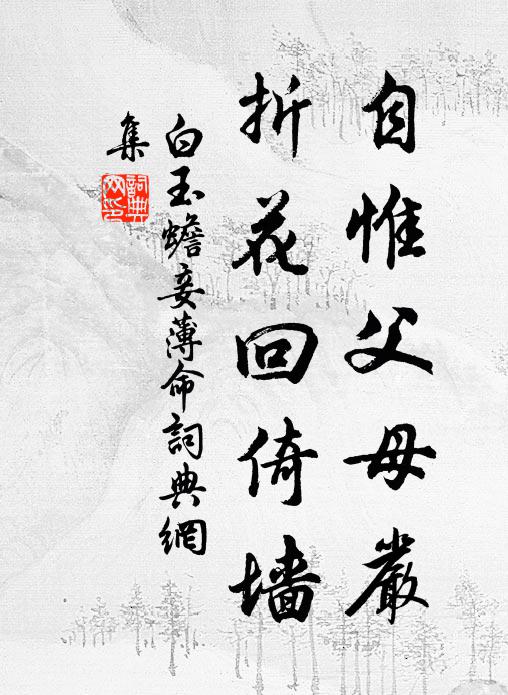 自惟父母嚴
折花回倚墙
白玉蟾妾薄命詞典網
集
詞典
网印